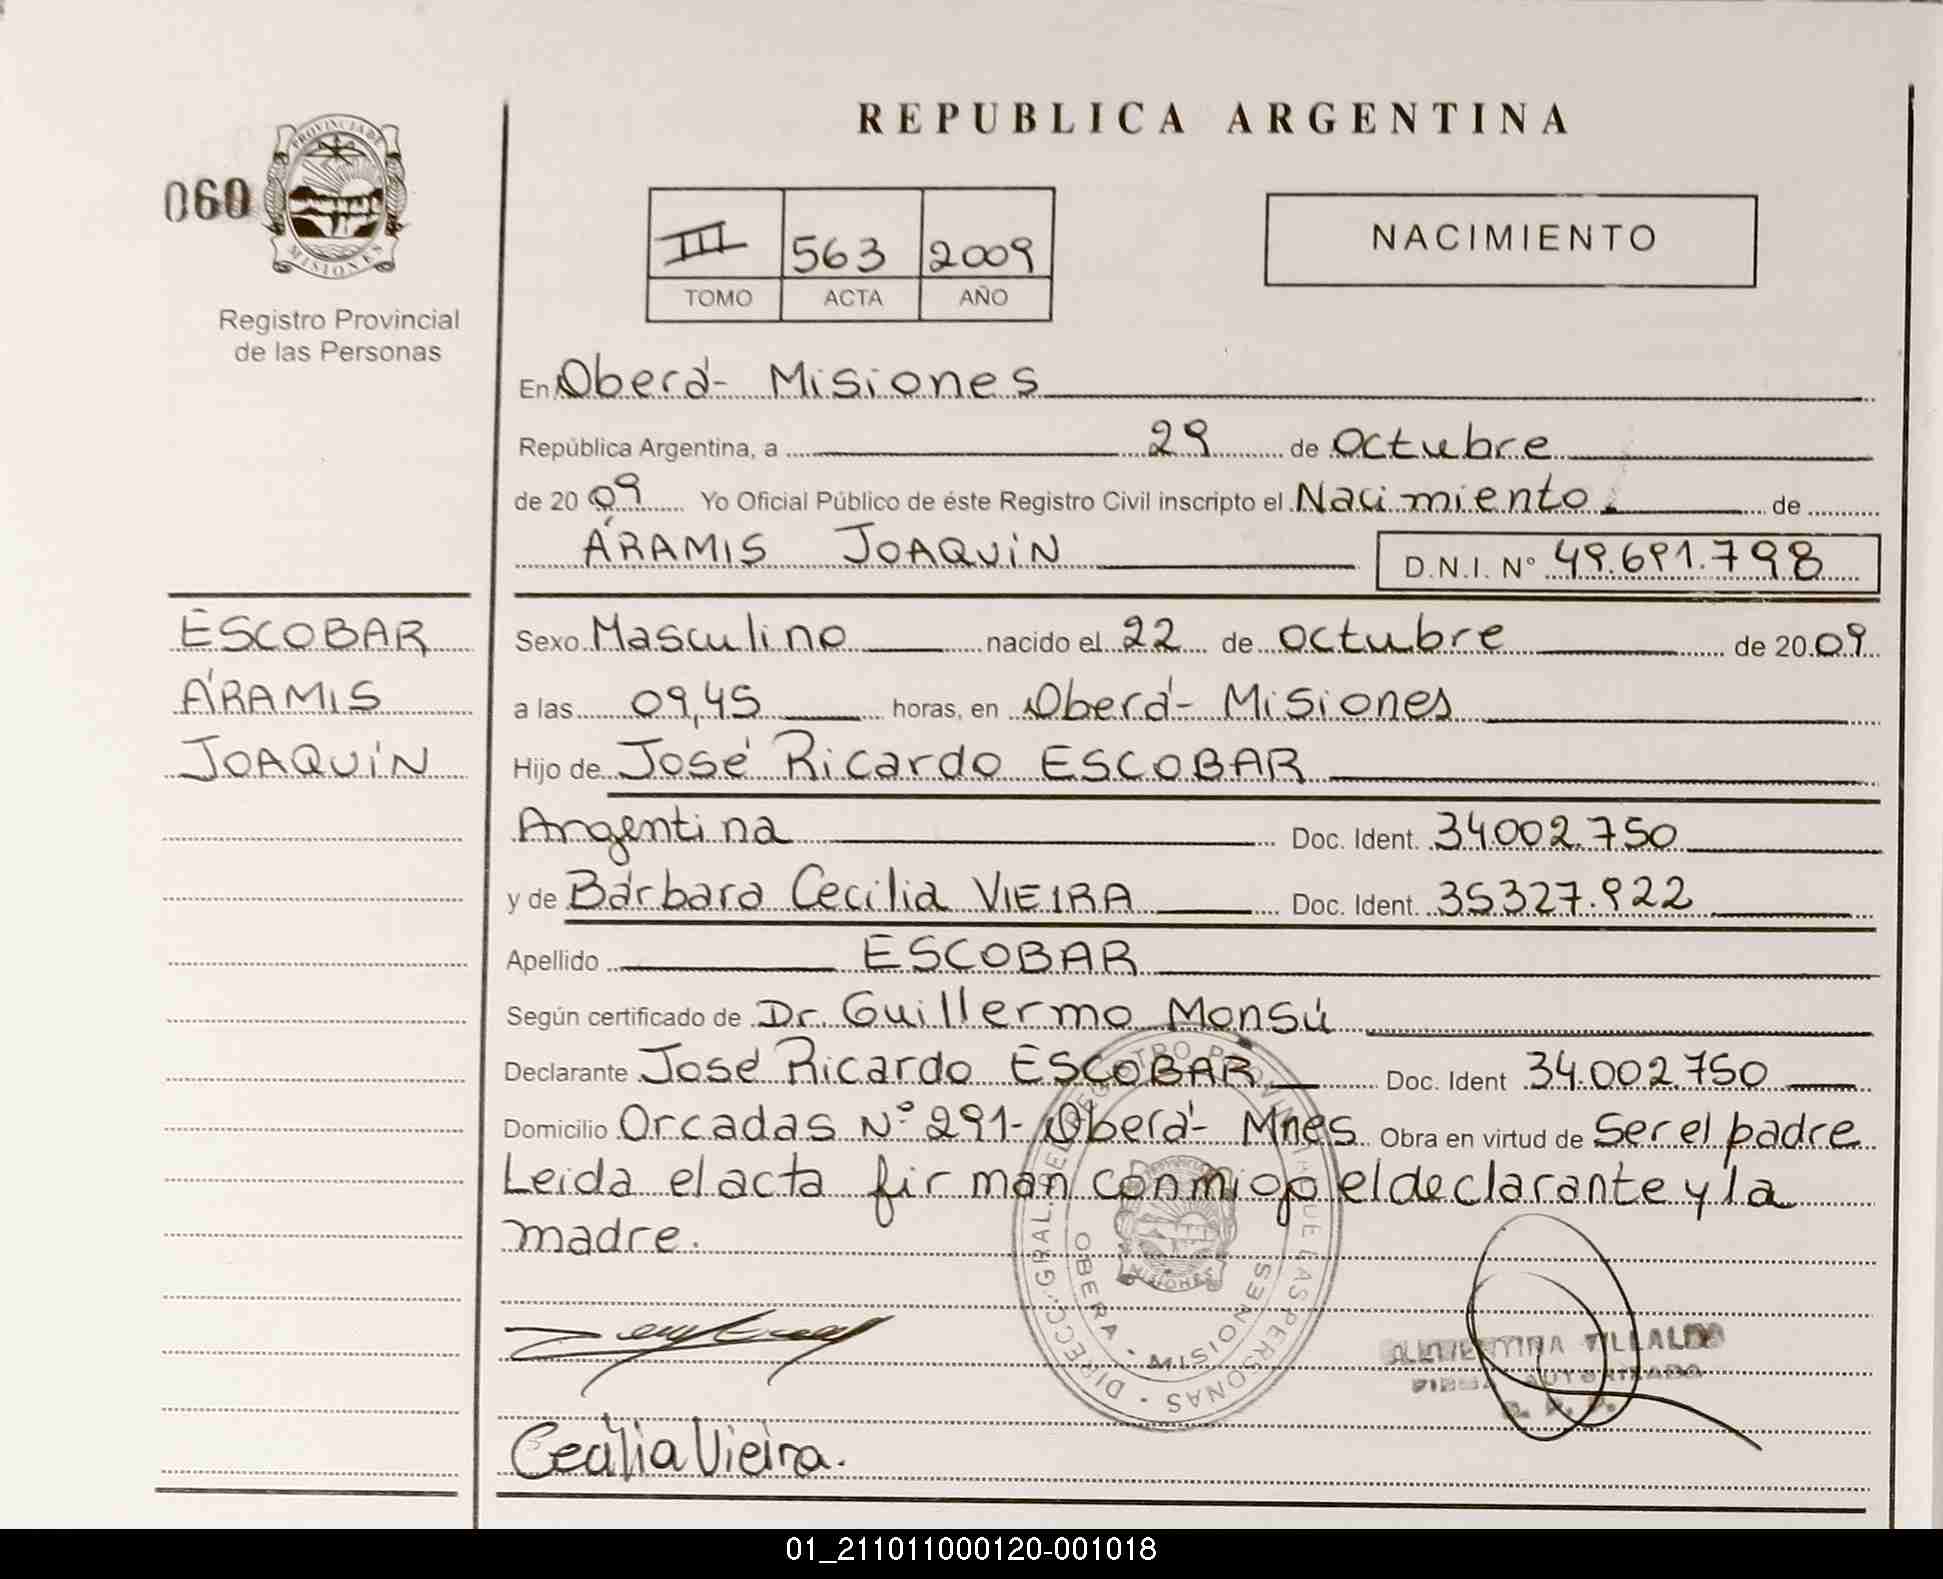 REPUBLICA ARGENTINA
060
PROVINCIA DE
MISIONES
Registro Provincial
de las Personas
III 563 2009
TOMO ACTA AÑO
NACIMIENTO
En Oberá- Misiones
República Argentina, a 29 de Octubre
de 20 09 Yo Oficial Público de éste Registro Civil inscripto el Nacimiento de
ÁRAMIS JOAQUÍN D.N.I. N° 49.691.798
ESCOBAR
ÁRAMIS
JOAQUÍN
Sexo Masculino nacido el 22 de octubre de 20 09
a las 09,45 horas, en Oberá- Misiones
Hijo de José Ricardo ESCOBAR
Argentina Doc. Ident. 34.002.750
y de Bárbara Cecilia VIEIRA Doc. Ident. 35327.922
Apellido ESCOBAR
Según certificado de Dr. Guillermo Monsú
Declarante José Ricardo ESCOBAR Doc. Ident 34.002.750
Domicilio Orcadas N° 291- Oberá- Mnes Obra en virtud de Ser el padre
Leida el acta firman conmigo el declarante y la
madre.
DIRECC. GRAL. DEL REGISTRO PROVINCIAL DE LAS PERSONAS
OBERA - MISIONES
MISIONES
FIRMA AUTORIZADA
Cecilia Vieira.
01_211011000120-001018